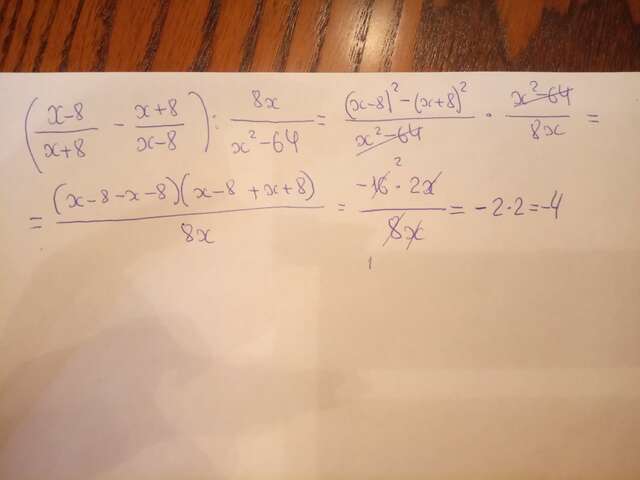 (x-8/x+8 - x+8/x-8) : 8x/x²-64 = (x-8)²-(x+8)²/x²-64 · x²-64/8x =
= (x-8-x-8)(x-8+x+8)/8x = -16 2 · 2x/8x 1 = -2·2=-4